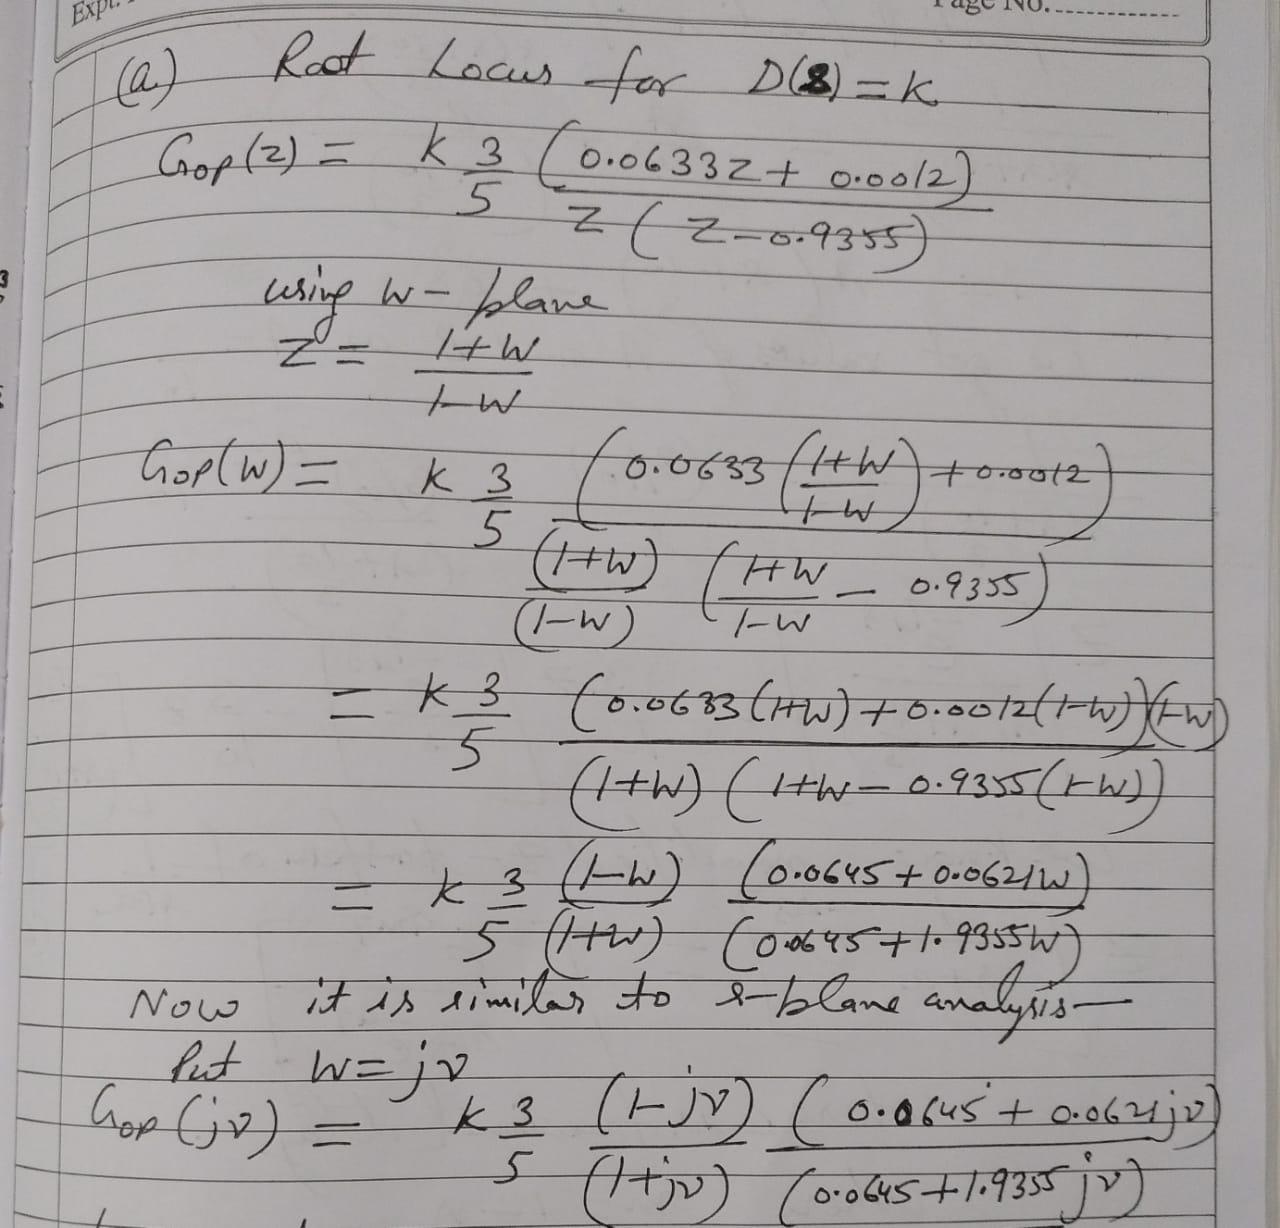 Expt.
Page No.
(a) Root Locus for D(z) = K
Gop(z) = K 3/5 (0.0633z + 0.0012) / z(z-0.9355)
using w-plane
z = 1+w / 1-w
Gop(w) = K 3/5 (0.0633 (1+w / 1-w) + 0.0012) / (1+w)/(1-w) (1+w / 1-w - 0.9355)
= K 3/5 (0.0633(1+w) + 0.0012(1-w))(1-w) / (1+w)(1+w - 0.9355(1-w))
= K 3/5 (1-w)/(1+w) (0.0645 + 0.0621w) / (0.0645 + 1.9355w)
Now it is similar to s-plane analysis—
Put w = jν
Gop(jν) = K 3/5 (1-jν)/(1+jν) (0.0645 + 0.0621jν) / (0.0645 + 1.9355jν)